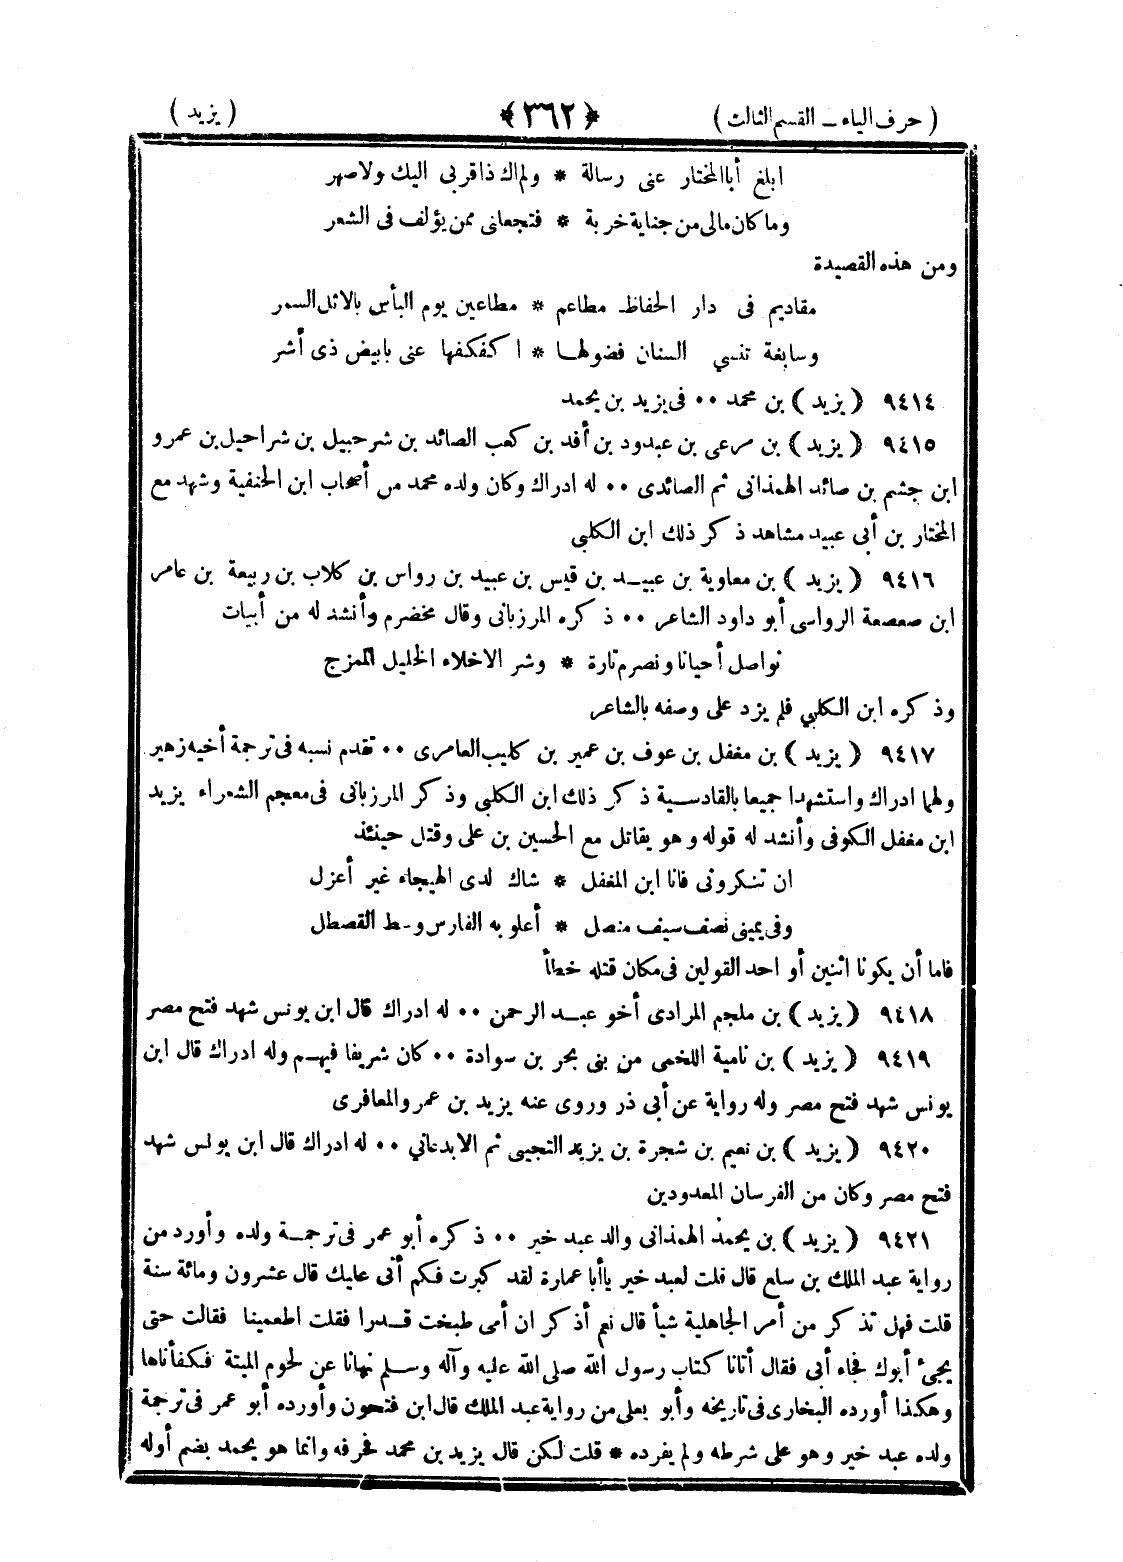 ( حرف الياء – القسم الثالث ) ﴿ ٣٦٢ ﴾ ( يزيد )
ابلغ أبا المختار عنى رسالة * ولم اك ذا قربى اليك ولا صهر
وما كان مالى من جناية خربة * فتجعانى ممن يؤلف فى الشعر
ومن هذه القصيدة
مقاديم فى دار الحفاظ مطاعم * مطاعين يوم البأس بالاثل السمر
وسابغة تنسي السنان فضولها * اكفكفها عنى بابيض ذى أشر
٩٤١٤ ( يزيد ) بن محمد ٠٠ فى يزيد بن يحمد
٩٤١٥ ( يزيد ) بن مرعى بن عبدود بن أفد بن كعب الصائد بن شرحبيل بن شراحيل بن عمرو
ابن جشم بن صائد الهمذانى ثم الصائدى ٠٠ له ادراك وكان ولده محمد من أصحاب ابن الحنفية وشهد مع
المختار بن أبى عبيد مشاهد ذكر ذلك ابن الكلبي
٩٤١٦ ( يزيد ) بن معاوية بن عبيد بن قيس بن عبيد بن رواس بن كلاب بن ربيعة بن عامر
ابن صعصعة الرواسى أبو داود الشاعر ٠٠ ذكره المرزبانى وقال مخضرم وأنشد له من أبيات
نواصل أحيانا ونصرم تارة * وشر الاخلاء الخليل الممزج
وذكره ابن الكلبي فلم يزد على وصفه بالشاعر
٩٤١٧ ( يزيد ) بن مغفل بن عوف بن عمير بن كليب العامرى ٠٠ تقدم نسبه فى ترجمة أخيه زهير
ولهما ادراك واستشهدا جميعا بالقادسية ذكر ذلك ابن الكلبي وذكر المرزبانى فى معجم الشعراء يزيد
ابن مغفل الكوفى وأنشد له قوله وهو يقاتل مع الحسين بن على وقتل حينئذ
ان تنكرونى فانا ابن المغفل * شاك لدى الهيجاء غير أعزل
وفى يمينى نصف سيف منصل * أعلو به الفارس وسط القصطل
فاما أن يكونا اثنين أو احد القولين فى مكان قتله خطأ
٩٤١٨ ( يزيد ) بن ملجم المرادى أخو عبد الرحمن ٠٠ له ادراك قال ابن يونس شهد فتح مصر
٩٤١٩ ( يزيد ) بن نامية اللخمى من بنى بحر بن سوادة ٠٠ كان شريفا فيهم وله ادراك قال ابن
يونس شهد فتح مصر وله رواية عن أبى ذر وروى عنه يزيد بن عمرو المعافرى
٩٤٢٠ ( يزيد ) بن نعيم بن شجرة بن يزيد التجيبى ثم الابدعاني ٠٠ له ادراك قال ابن يونس شهد
فتح مصر وكان من الفرسان المعدودين
٩٤٢١ ( يزيد ) بن يحمد الهمذانى والد عبد خير ٠٠ ذكره أبو عمر فى ترجمة ولده وأورد من
رواية عبد الملك بن سلع قال قلت لعبد خير ياأبا عمارة لقد كبرت فكم أتى عليك قال عشرون ومائة سنة
قلت فهل تذكر من أمر الجاهلية شيأ قال نعم أذكر ان أمى طبخت قدرا فقلت اطعمينا فقالت حتى
يجئ أبوك فجاء أبى فقال أتانا كتاب رسول الله صلى الله عليه وآله وسلم نهانا عن لحوم الميتة فكفأناها
وهكذا أورده البخارى فى تاريخه وأبو يعلى من رواية عبد الملك قال ابن فتحون وأورده أبو عمر فى ترجمة
ولده عبد خير وهو على شرطه ولم يفرده * قلت لكن قال يزيد بن محمد فحرفه وانما هو يحمد بضم أوله